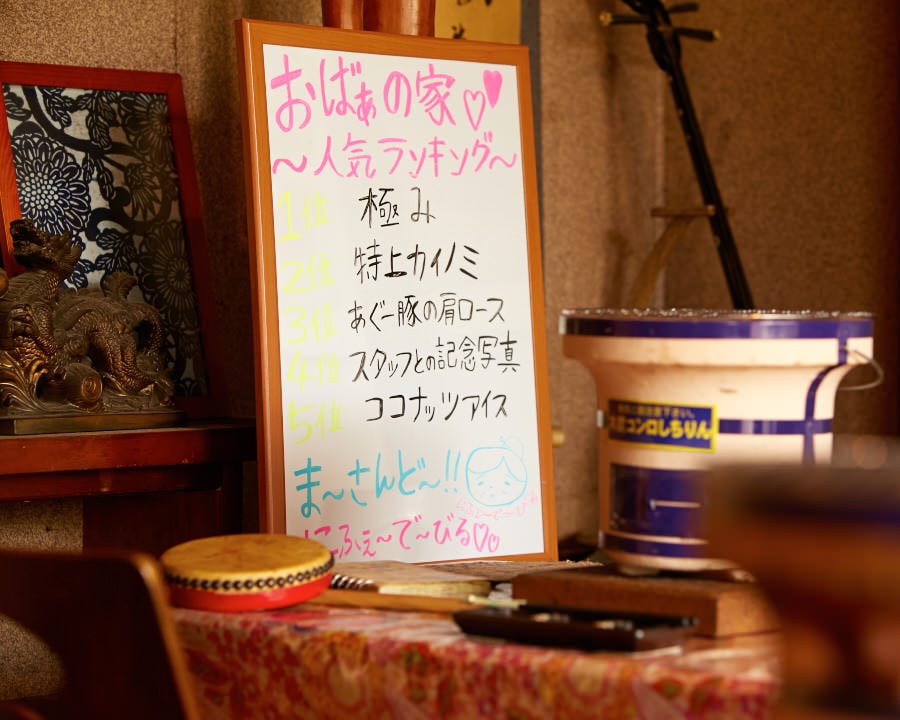 おばぁの家♡♥
～人気ランキング～
1位 極み
2位 特上カイノミ
3位 あぐー豚の肩ロース
4位 スタッフとの記念写真
5位 ココナッツアイス
ま～さんど～!!
にふぇ～で～びる♡♡
コンロしちりん